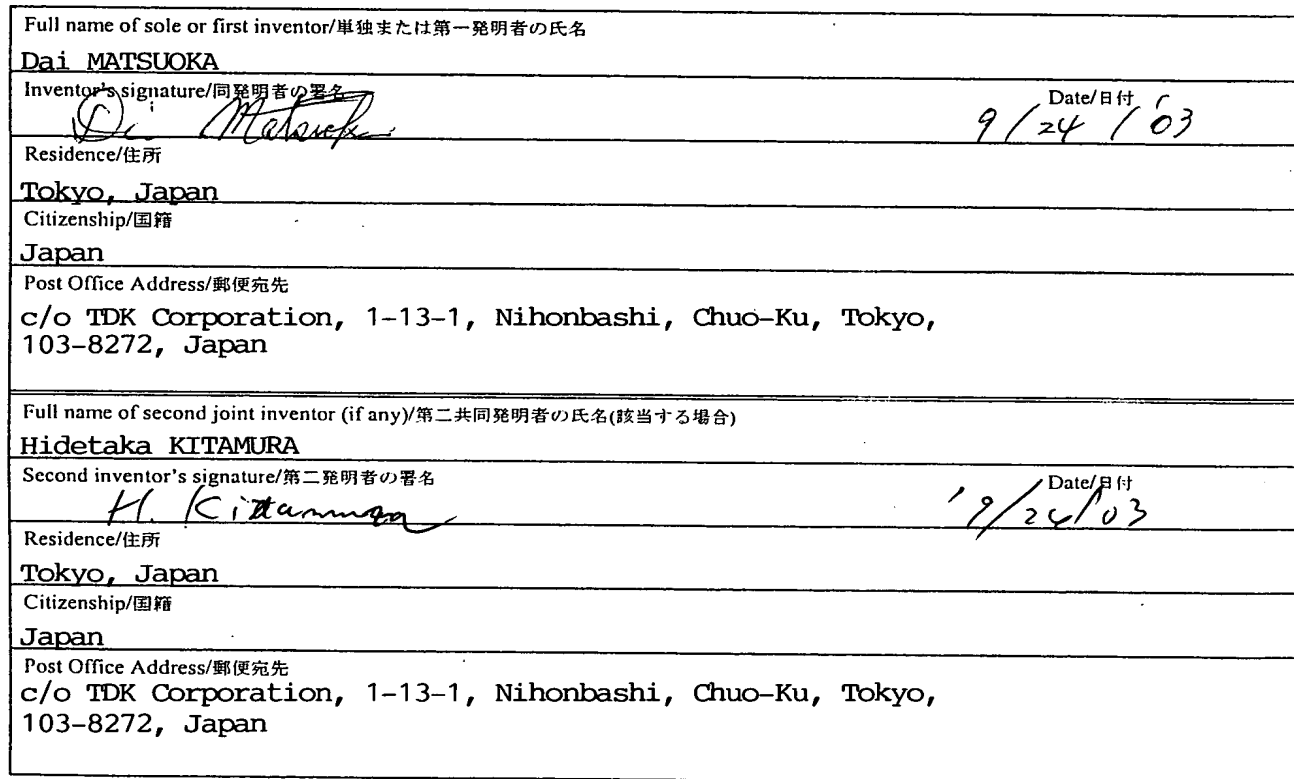 Full name of sole or first inventor/単独または第一発明者の氏名
Dai MATSUOKA
Inventor's signature/同発明者の署名
Date/日付
Di Matsuoka
9/24/'03
Residence/住所
Tokyo, Japan
Citizenship/国籍
Japan
Post Office Address/郵便宛先
c/o TDK Corporation, 1-13-1, Nihonbashi, Chuo-Ku, Tokyo,
103-8272, Japan
Full name of second joint inventor (if any)/第二共同発明者の氏名(該当する場合)
Hidetaka KITAMURA
Second inventor's signature/第二発明者の署名
Date/日付
H. Kitamura
9/24/'03
Residence/住所
Tokyo, Japan
Citizenship/国籍
Japan
Post Office Address/郵便宛先
c/o TDK Corporation, 1-13-1, Nihonbashi, Chuo-Ku, Tokyo,
103-8272, Japan